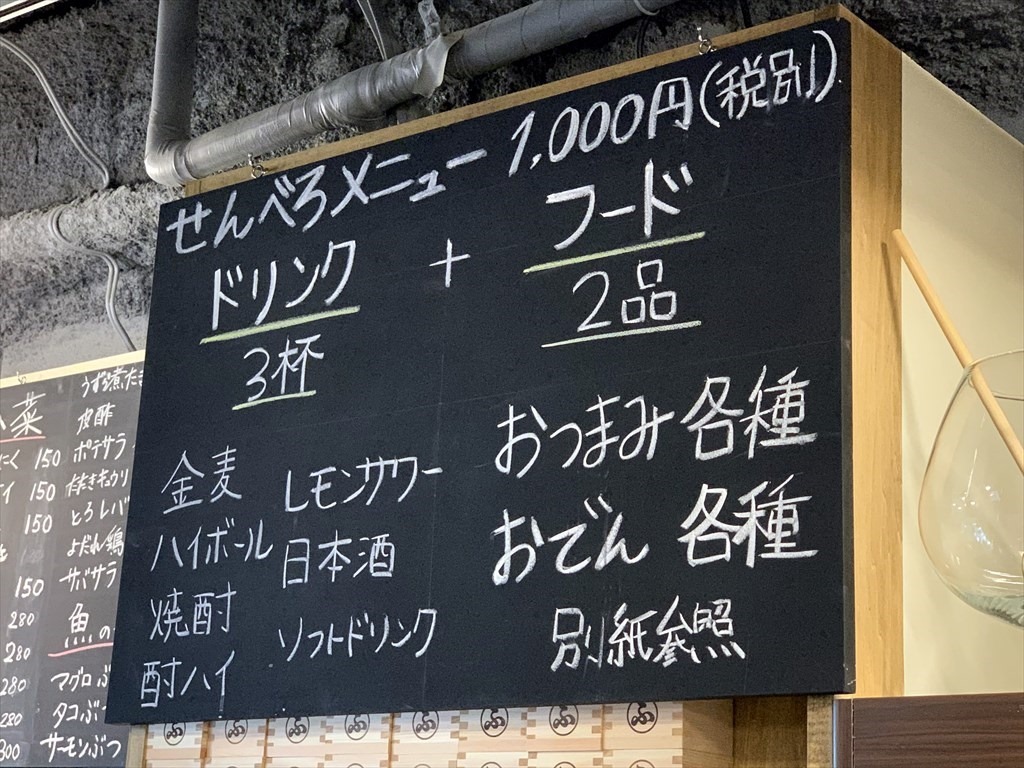 せんべろメニュー 1,000円(税別)
ドリンク + フード
3杯 2品
金麦 レモンサワー
ハイボール 日本酒
焼酎 ソフトドリンク
酎ハイ
おつまみ各種
おでん 各種
別紙参照
菜
150
150
150
150
280
280
280
280
300
うずら煮たま
皮酢
ポテサラ
たたきキュウリ
とろレバ
よだれ鶏
サバサラ
魚の
マグロぶ
タコぶ
サーモンぶつ